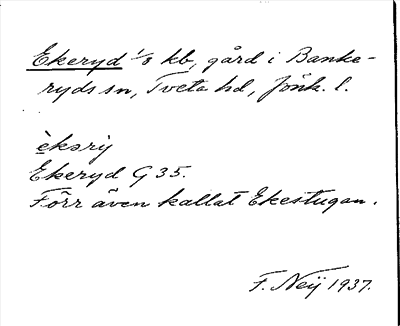 Ekeryd 1/8 kb, gård i Banke-
ryds sn, Tveta hd, Jönk. l.
èksrij
Ekeryd G 35.
Förr även kallat Ekestugan.
F. Neij 1937.